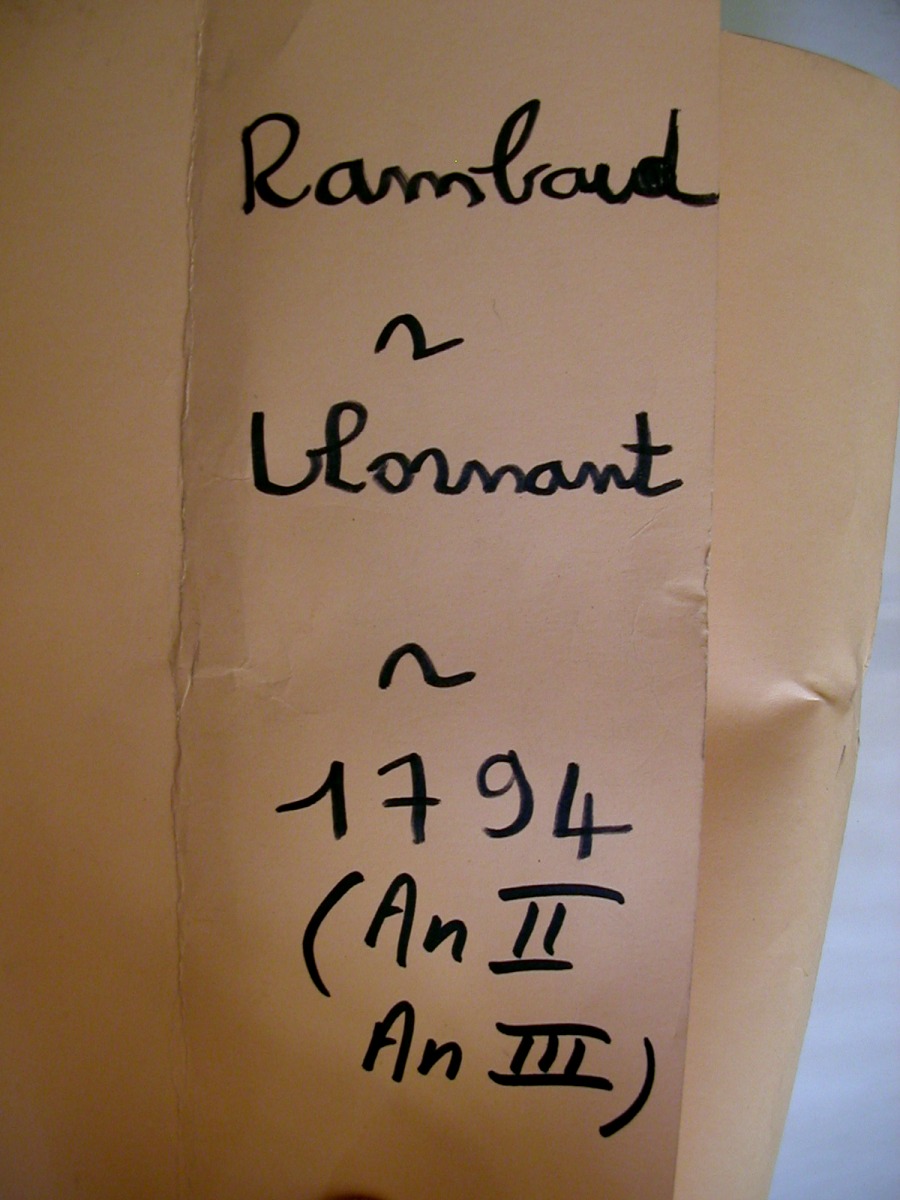 Rambaud
~
Vlornant
~
1794
(An II
An III)